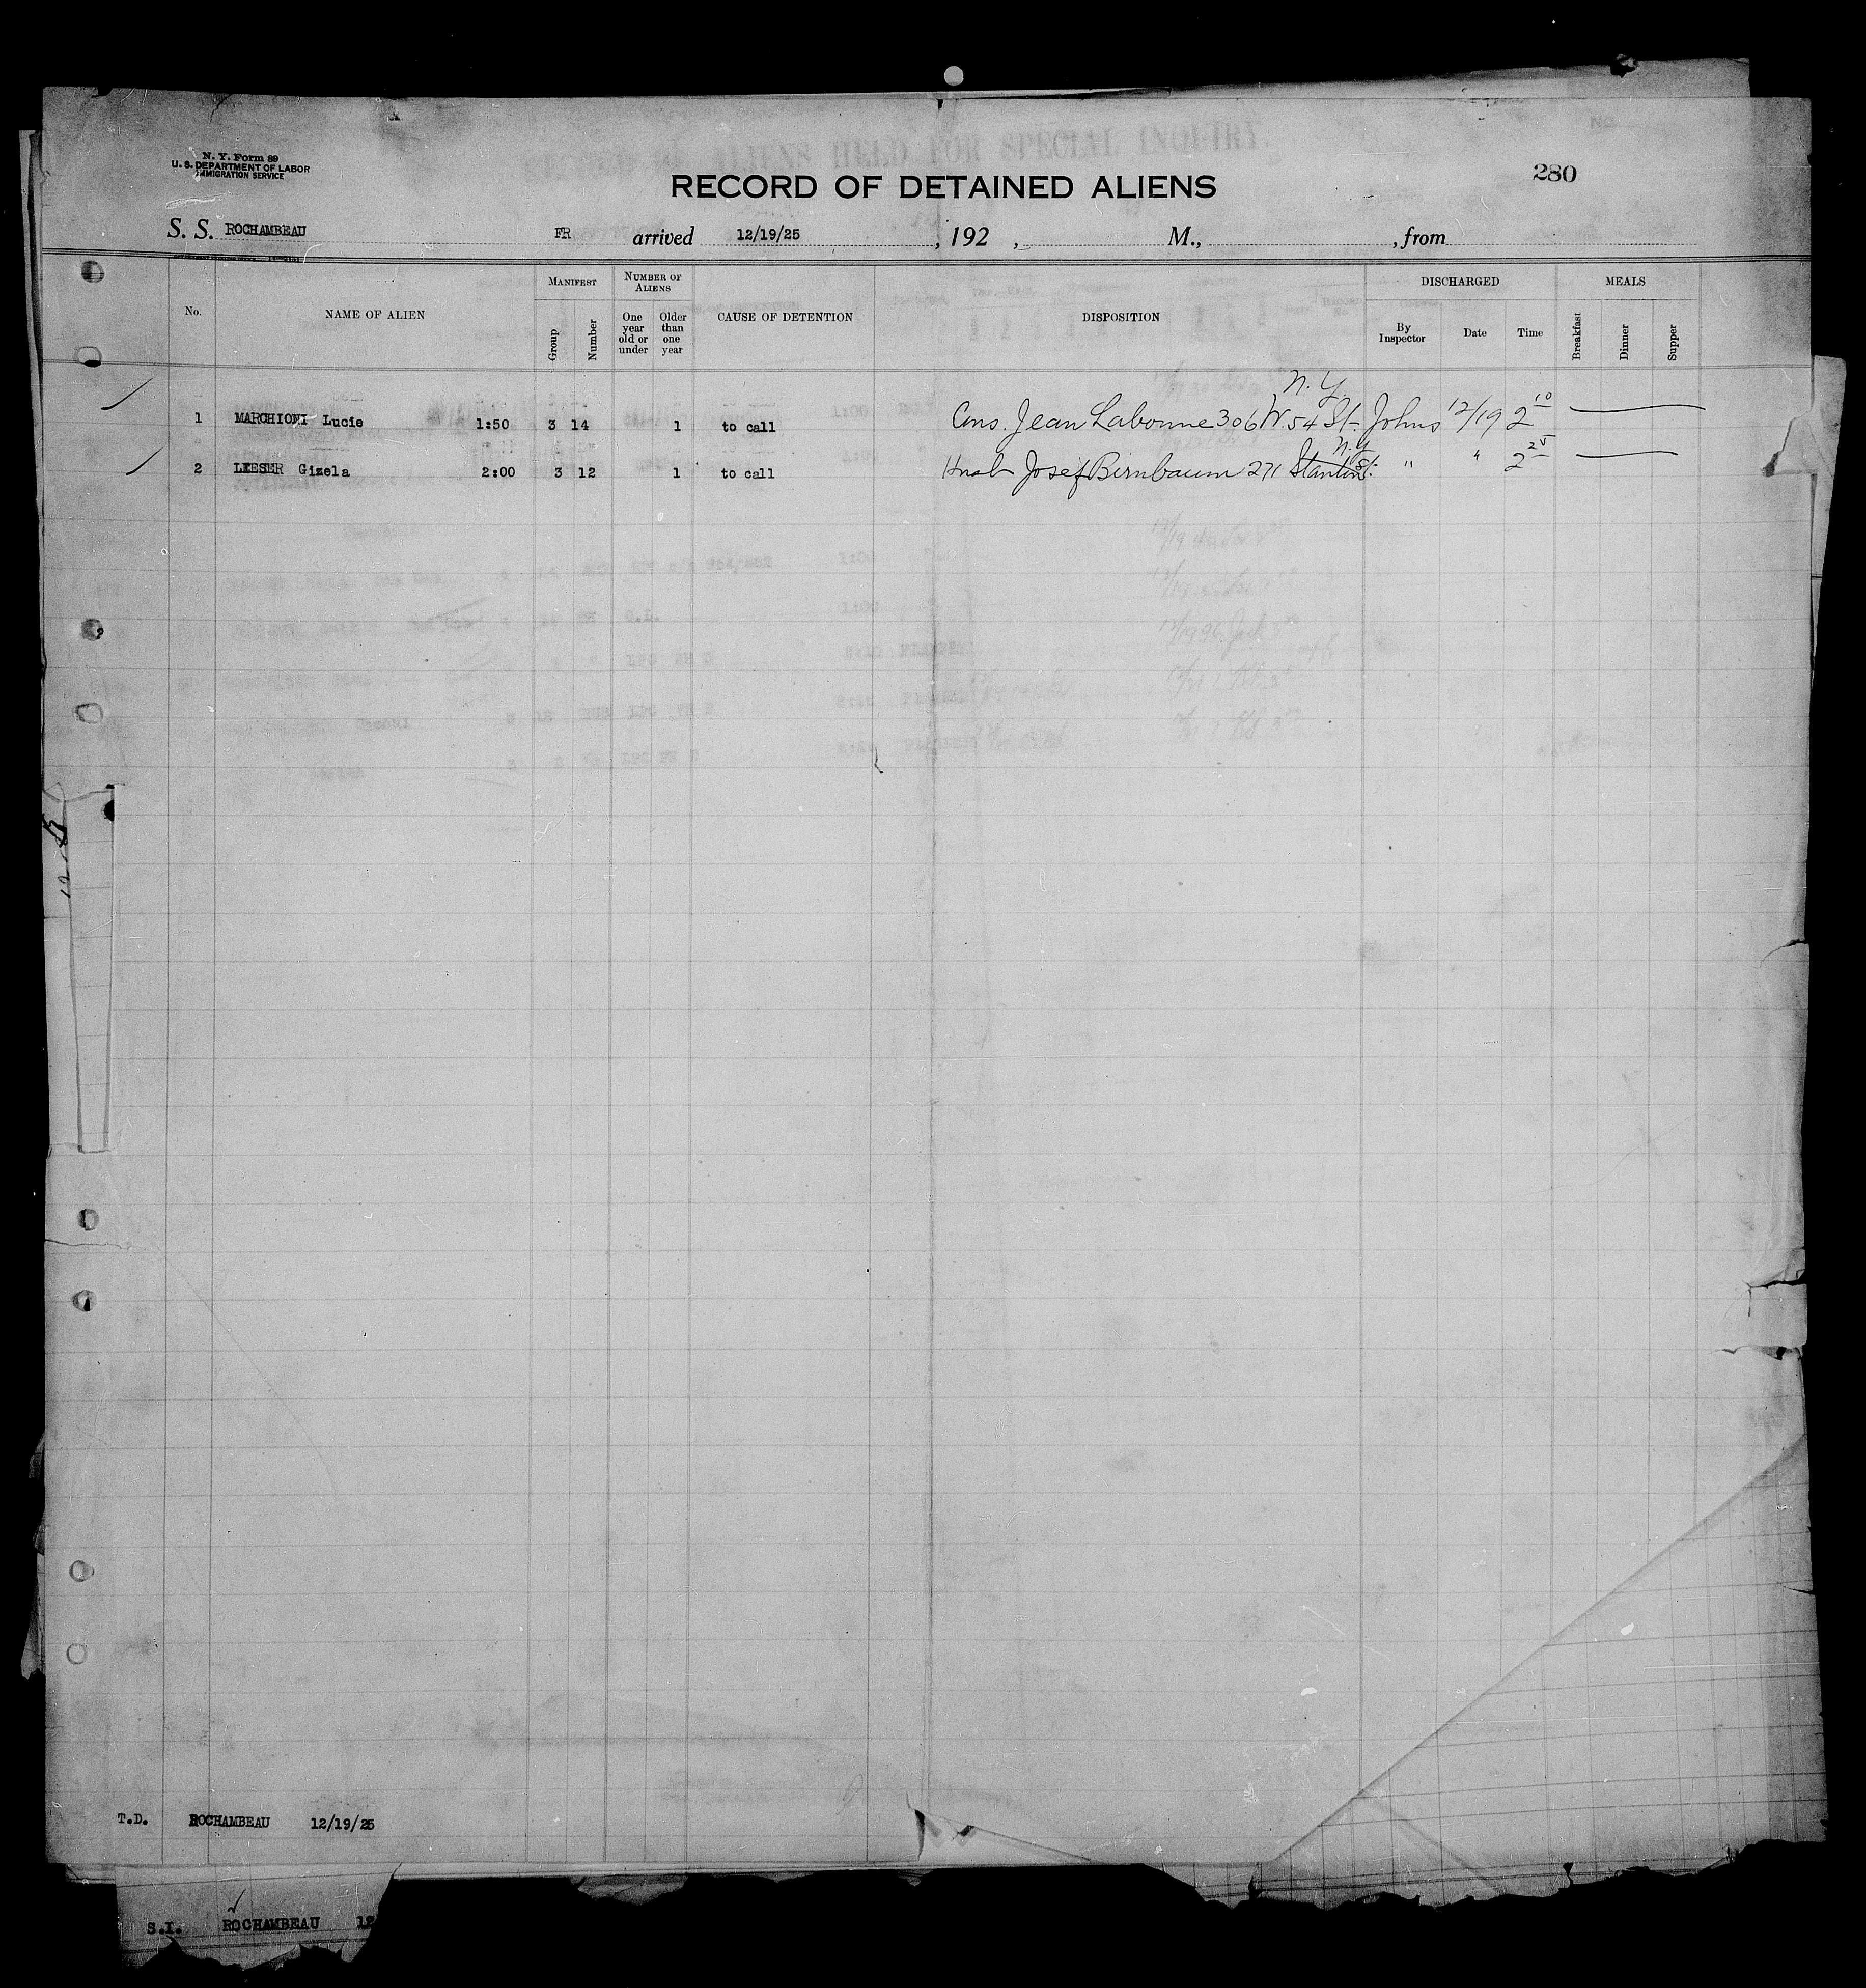 N. Y. Form 89
U. S. DEPARTMENT OF LABOR
IMMIGRATION SERVICE
ALIENS HELD FOR SPECIAL INQUIRY.
RECORD OF DETAINED ALIENS
280
S. S. ROCHAMBEAU FR arrived 12/19/25, 192 , M., , from
No. NAME OF ALIEN MANIFEST Group Number NUMBER OF ALIENS One year old or under Older than one year CAUSE OF DETENTION DISPOSITION DISCHARGED By Inspector Date Time MEALS Breakfast Dinner Supper
N. Y.
1 MARCHIONI Lucie 1:50 3 14 1 to call Cous. Jean Labonne 306 W. 54 St. Johns 12/19 2 10
N. Y.
2 LIESER Gizela 2:00 3 12 1 to call Husb Josef Birnbaum 271 Stanton St. " " 2 25
T.D. ROCHAMBEAU 12/19/25
S.I. ROCHAMBEAU 12